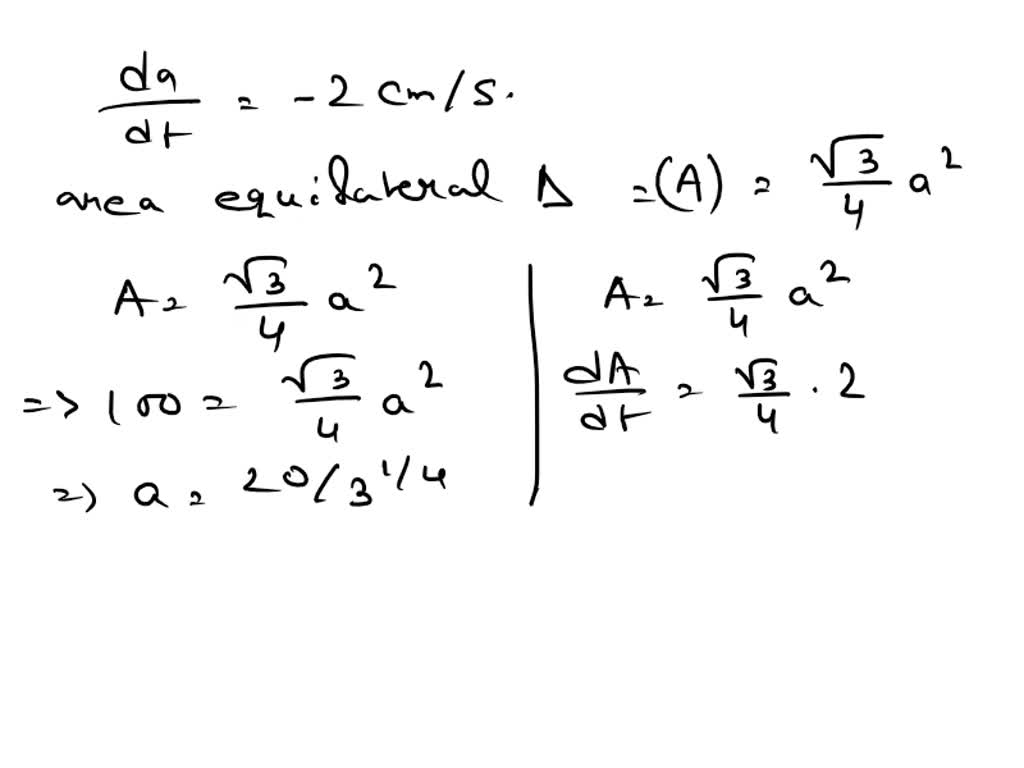 da/dt = -2 cm/s.
area equilateral Δ =(A) = √3/4 a²
A = √3/4 a²
=> 100 = √3/4 a²
=> a = 20/3^1/4
A = √3/4 a²
dA/dt = √3/4 · 2